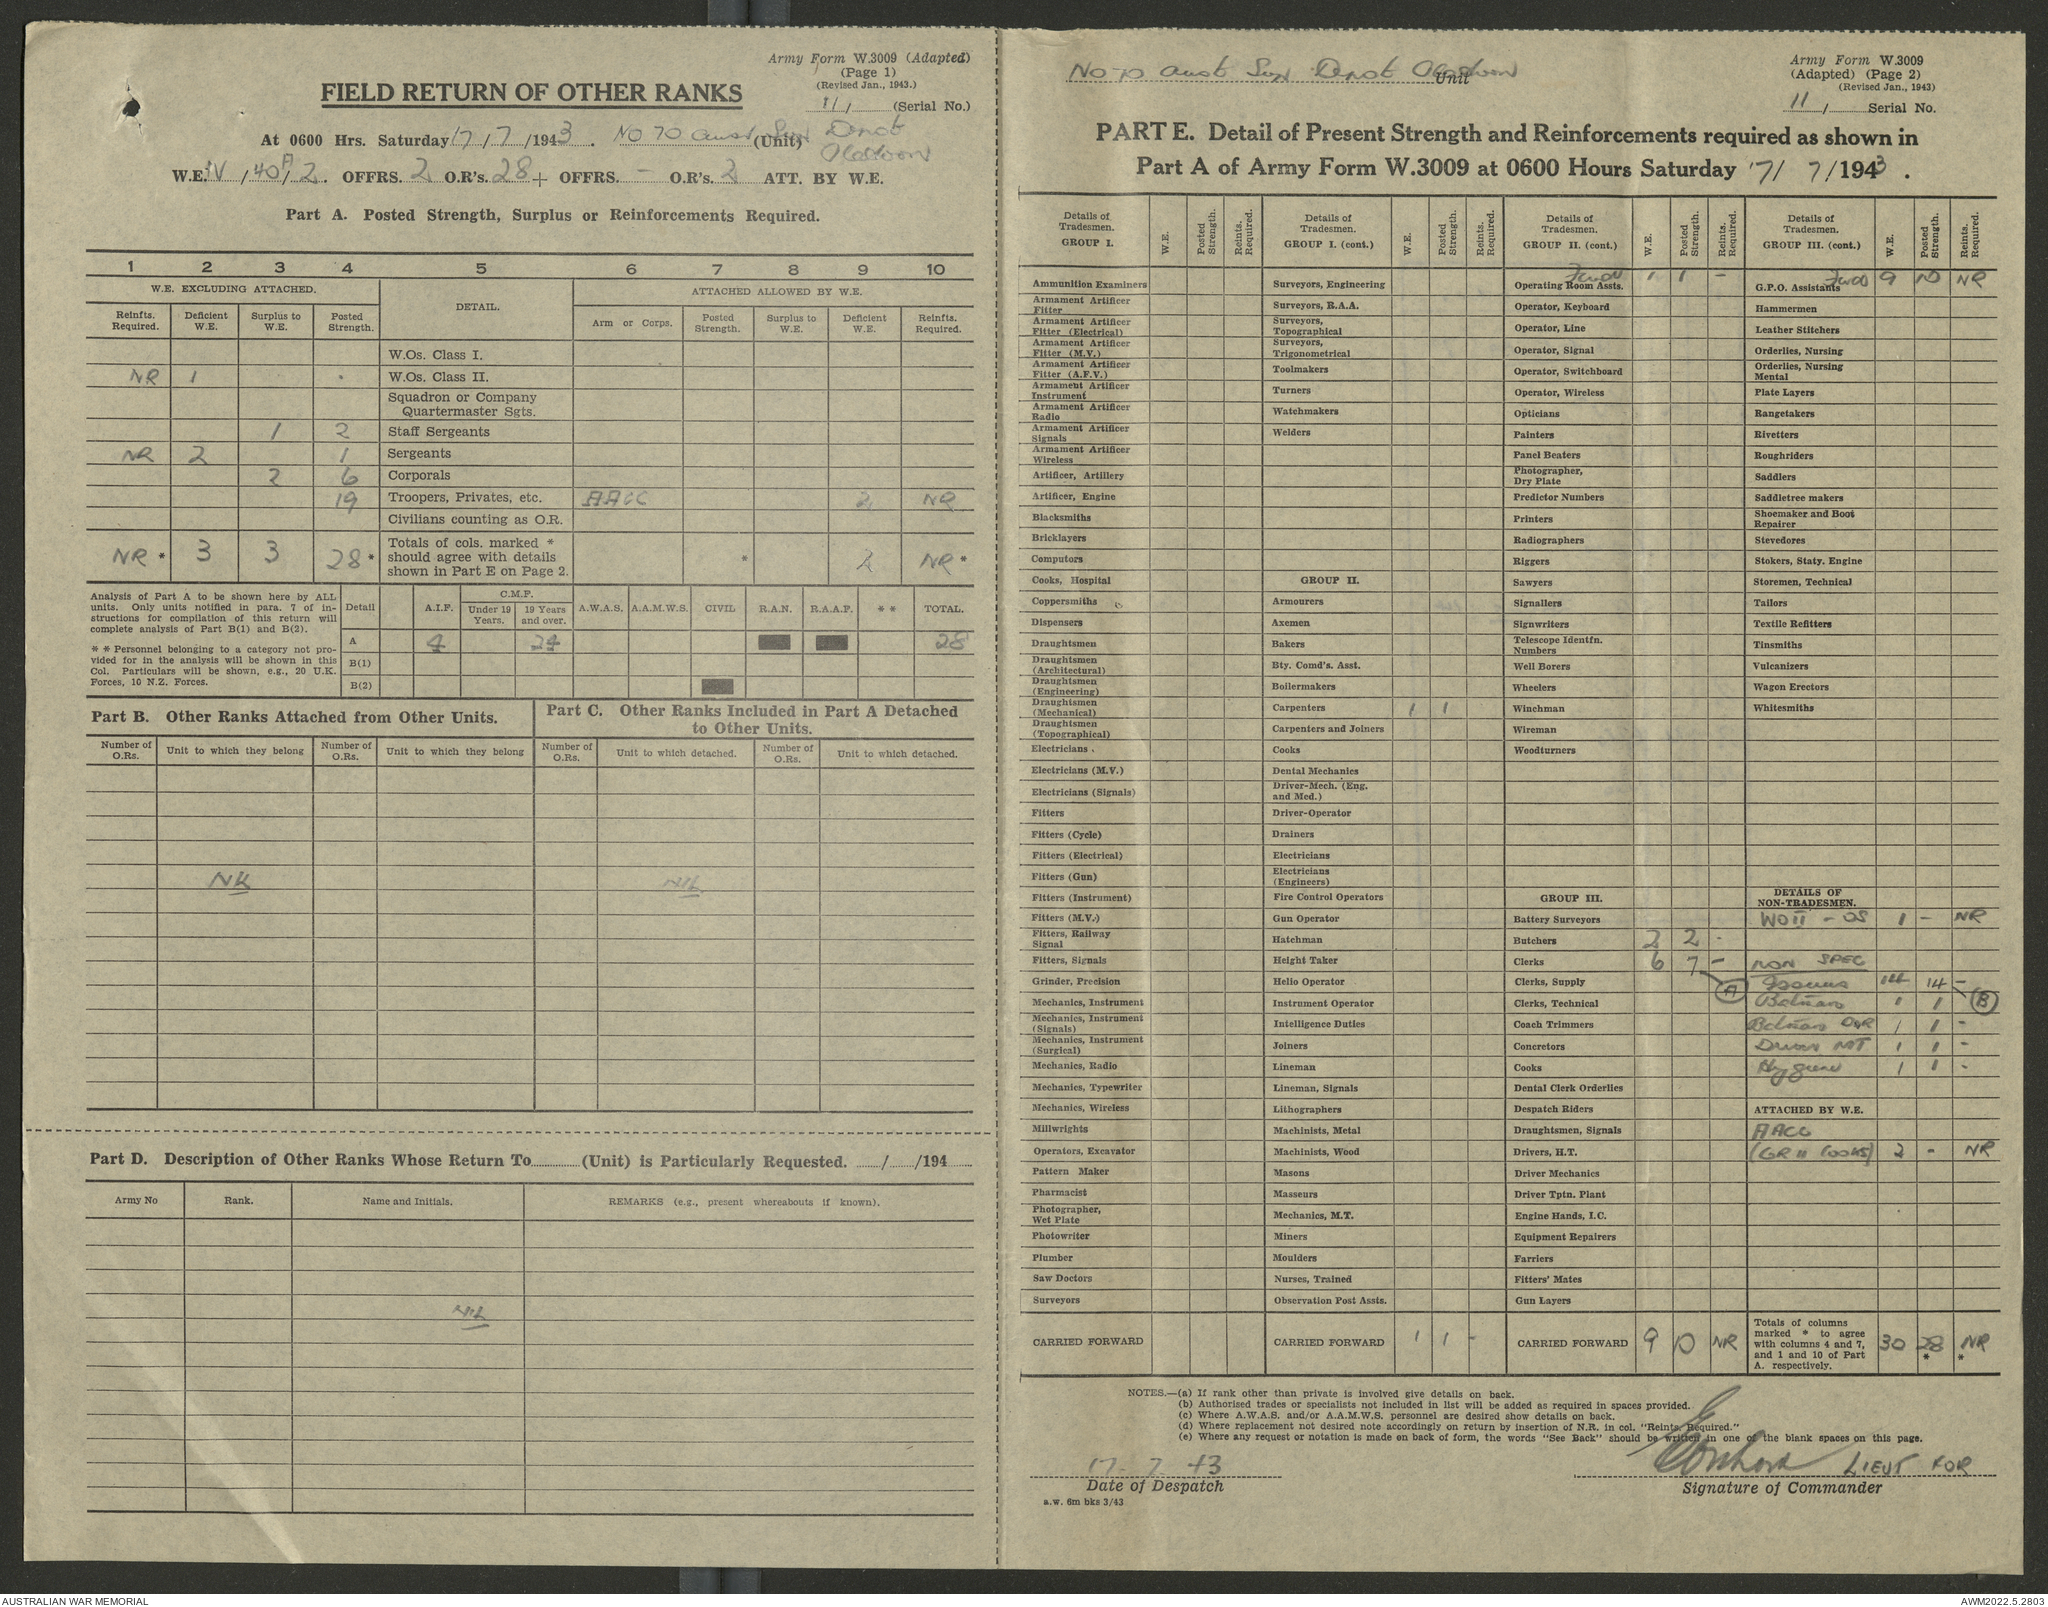 Army Form W.3009 (Adapted)
(Page 1)
(Revised Jan., 1943.)
FIELD RETURN OF OTHER RANKS
11/ (Serial No.)
At 0600 Hrs. Saturday 17/7/1943. No 70 Aust Sup Depot (Unit)
W.E. IV/40A/2. OFFRS. 2 O.R's. 28 + OFFRS. - O.R's. 2 ATT. BY W.E.
Part A. Posted Strength, Surplus or Reinforcements Required.
1 2 3 4 5 6 7 8 9 10
W.E. EXCLUDING ATTACHED. DETAIL. ATTACHED ALLOWED BY W.E.
Reinfts. Required. Deficient W.E. Surplus to W.E. Posted Strength. Arm or Corps. Posted Strength. Surplus to W.E. Deficient W.E. Reinfts. Required.
W.Os. Class I.
NR 1 . W.Os. Class II.
Squadron or Company Quartermaster Sgts.
1 2 Staff Sergeants
NR 2 1 Sergeants
2 6 Corporals
19 Troopers, Privates, etc. AACC 2 NR
Civilians counting as O.R.
NR * 3 3 28 * Totals of cols. marked * should agree with details shown in Part E on Page 2. * 2 NR *
Analysis of Part A to be shown here by ALL units. Only units notified in para. 7 of instructions for compilation of this return will complete analysis of Part B(1) and B(2).
* * Personnel belonging to a category not provided for in the analysis will be shown in this Col. Particulars will be shown, e.g., 20 U.K. Forces, 10 N.Z. Forces.
Detail A.I.F. C.M.F. Under 19 Years. 19 Years and over. A.W.A.S. A.A.M.W.S. CIVIL R.A.N. R.A.A.F. * * TOTAL.
A 4 24 28
B(1)
B(2)
Part B. Other Ranks Attached from Other Units.
Number of O.Rs. Unit to which they belong Number of O.Rs. Unit to which they belong
NIL
Part C. Other Ranks Included in Part A Detached to Other Units.
Number of O.Rs. Unit to which detached. Number of O.Rs. Unit to which detached.
NIL
Part D. Description of Other Ranks Whose Return To (Unit) is Particularly Requested. / /194
Army No Rank. Name and Initials. REMARKS (e.g., present whereabouts if known).
NIL
No 70 Aust Sup Depot Unit
Army Form W.3009
(Adapted) (Page 2)
(Revised Jan., 1943)
11/ Serial No.
PART E. Detail of Present Strength and Reinforcements required as shown in
Part A of Army Form W.3009 at 0600 Hours Saturday 17/7/1943.
Details of Tradesmen. GROUP I. W.E. Posted Strength. Reinfts. Required.
Ammunition Examiners
Armament Artificer Fitter
Armament Artificer Fitter (Electrical)
Armament Artificer Fitter (M.V.)
Armament Artificer Fitter (A.F.V.)
Armament Artificer Instrument
Armament Artificer Radio
Armament Artificer Signals
Armament Artificer Wireless
Artificer, Artillery
Artificer, Engine
Blacksmiths
Bricklayers
Computors
Cooks, Hospital
Coppersmiths
Dispensers
Draughtsmen
Draughtsmen (Architectural)
Draughtsmen (Engineering)
Draughtsmen (Mechanical)
Draughtsmen (Topographical)
Electricians
Electricians (M.V.)
Electricians (Signals)
Fitters
Fitters (Cycle)
Fitters (Electrical)
Fitters (Gun)
Fitters (Instrument)
Fitters (M.V.)
Fitters, Railway Signal
Fitters, Signals
Grinder, Precision
Mechanics, Instrument
Mechanics, Instrument (Signals)
Mechanics, Instrument (Surgical)
Mechanics, Radio
Mechanics, Typewriter
Mechanics, Wireless
Millwrights
Operators, Excavator
Pattern Maker
Pharmacist
Photographer, Wet Plate
Photowriter
Plumber
Saw Doctors
Surveyors
CARRIED FORWARD
Details of Tradesmen. GROUP I. (cont.) W.E. Posted Strength. Reinfts. Required.
Surveyors, Engineering
Surveyors, R.A.A.
Surveyors, Topographical
Surveyors, Trigonometrical
Toolmakers
Turners
Watchmakers
Welders
GROUP II.
Armourers
Axemen
Bakers
Bty. Comd's. Asst.
Boilermakers
Carpenters 1 1
Carpenters and Joiners
Cooks
Dental Mechanics
Driver-Mech. (Eng. and Med.)
Driver-Operator
Drainers
Electricians
Electricians (Engineers)
Fire Control Operators
Gun Operator
Hatchman
Height Taker
Helio Operator
Instrument Operator
Intelligence Duties
Joiners
Lineman
Lineman, Signals
Lithographers
Machinists, Metal
Machinists, Wood
Masons
Masseurs
Mechanics, M.T.
Miners
Moulders
Nurses, Trained
Observation Post Assts.
CARRIED FORWARD 1 1 -
Details of Tradesmen. GROUP II. (cont.) W.E. Posted Strength. Reinfts. Required.
Fwd 1 1 -
Operating Room Assts.
Operator, Keyboard
Operator, Line
Operator, Signal
Operator, Switchboard
Operator, Wireless
Opticians
Painters
Panel Beaters
Photographer, Dry Plate
Predictor Numbers
Printers
Radiographers
Riggers
Sawyers
Signallers
Signwriters
Telescope Identfn. Numbers
Well Borers
Wheelers
Winchman
Wireman
Woodturners
GROUP III.
Battery Surveyors
Butchers 2 2 -
Clerks 6 7 -
Clerks, Supply (A)
Clerks, Technical
Coach Trimmers
Concretors
Cooks
Dental Clerk Orderlies
Despatch Riders
Draughtsmen, Signals
Drivers, H.T.
Driver Mechanics
Driver Tptn. Plant
Engine Hands, I.C.
Equipment Repairers
Farriers
Fitters' Mates
Gun Layers
CARRIED FORWARD 9 10 NR
Details of Tradesmen. GROUP III. (cont.) W.E. Posted Strength. Reinfts. Required.
Fwd 9 10 NR
G.P.O. Assistants
Hammermen
Leather Stitchers
Orderlies, Nursing
Orderlies, Nursing Mental
Plate Layers
Rangetakers
Rivetters
Roughriders
Saddlers
Saddletree makers
Shoemaker and Boot Repairer
Stevedores
Stokers, Staty. Engine
Storemen, Technical
Tailors
Textile Refitters
Tinsmiths
Vulcanizers
Wagon Erectors
Whitesmiths
DETAILS OF NON-TRADESMEN.
WOII - 1 - NR
NON SPEC
Issuers 14 14 -
Batman 1 1 (B)
Batman 1 1 -
Driver MT 1 1 -
Hygiene 1 1 -
ATTACHED BY W.E.
AACC
(GR II COOKS) 2 - NR
Totals of columns marked * to agree with columns 4 and 7, and 1 and 10 of Part A. respectively. 30 28 * NR *
NOTES.—(a) If rank other than private is involved give details on back.
(b) Authorised trades or specialists not included in list will be added as required in spaces provided.
(c) Where A.W.A.S. and/or A.A.M.W.S. personnel are desired show details on back.
(d) Where replacement not desired note accordingly on return by insertion of N.R. in col. "Reints. Required."
(e) Where any request or notation is made on back of form, the words "See Back" should be written in one of the blank spaces on this page.
17-7-43
Date of Despatch
LIEUT FOR
Signature of Commander
a.w. 6m bks 3/43
AUSTRALIAN WAR MEMORIAL
AWM2022.5.2803